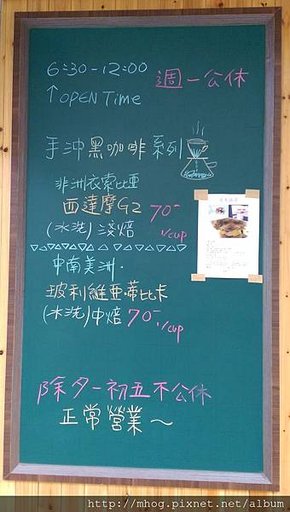 6:30-12:00
週一公休
↑OPEN Time
手沖黑咖啡系列
非洲衣索比亞
西達摩G2 70-
(水洗)淺焙 1/cup
中南美洲.
玻利維亞蒂比卡
(水洗)中焙 70-
1/cup
除夕－初五不公休
正常營業～
http://mhog.pixnet.net/album